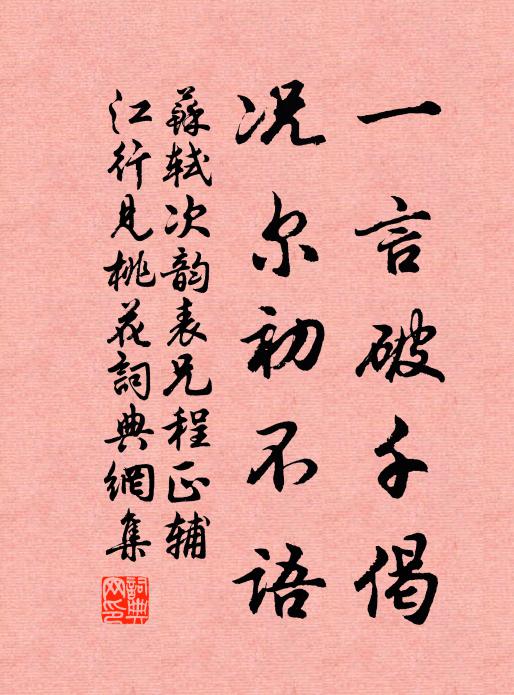 一言破千偈
况尔初不语
蘇轼次韵表兄程正辅
江行見桃花詞典網集
詞典网印